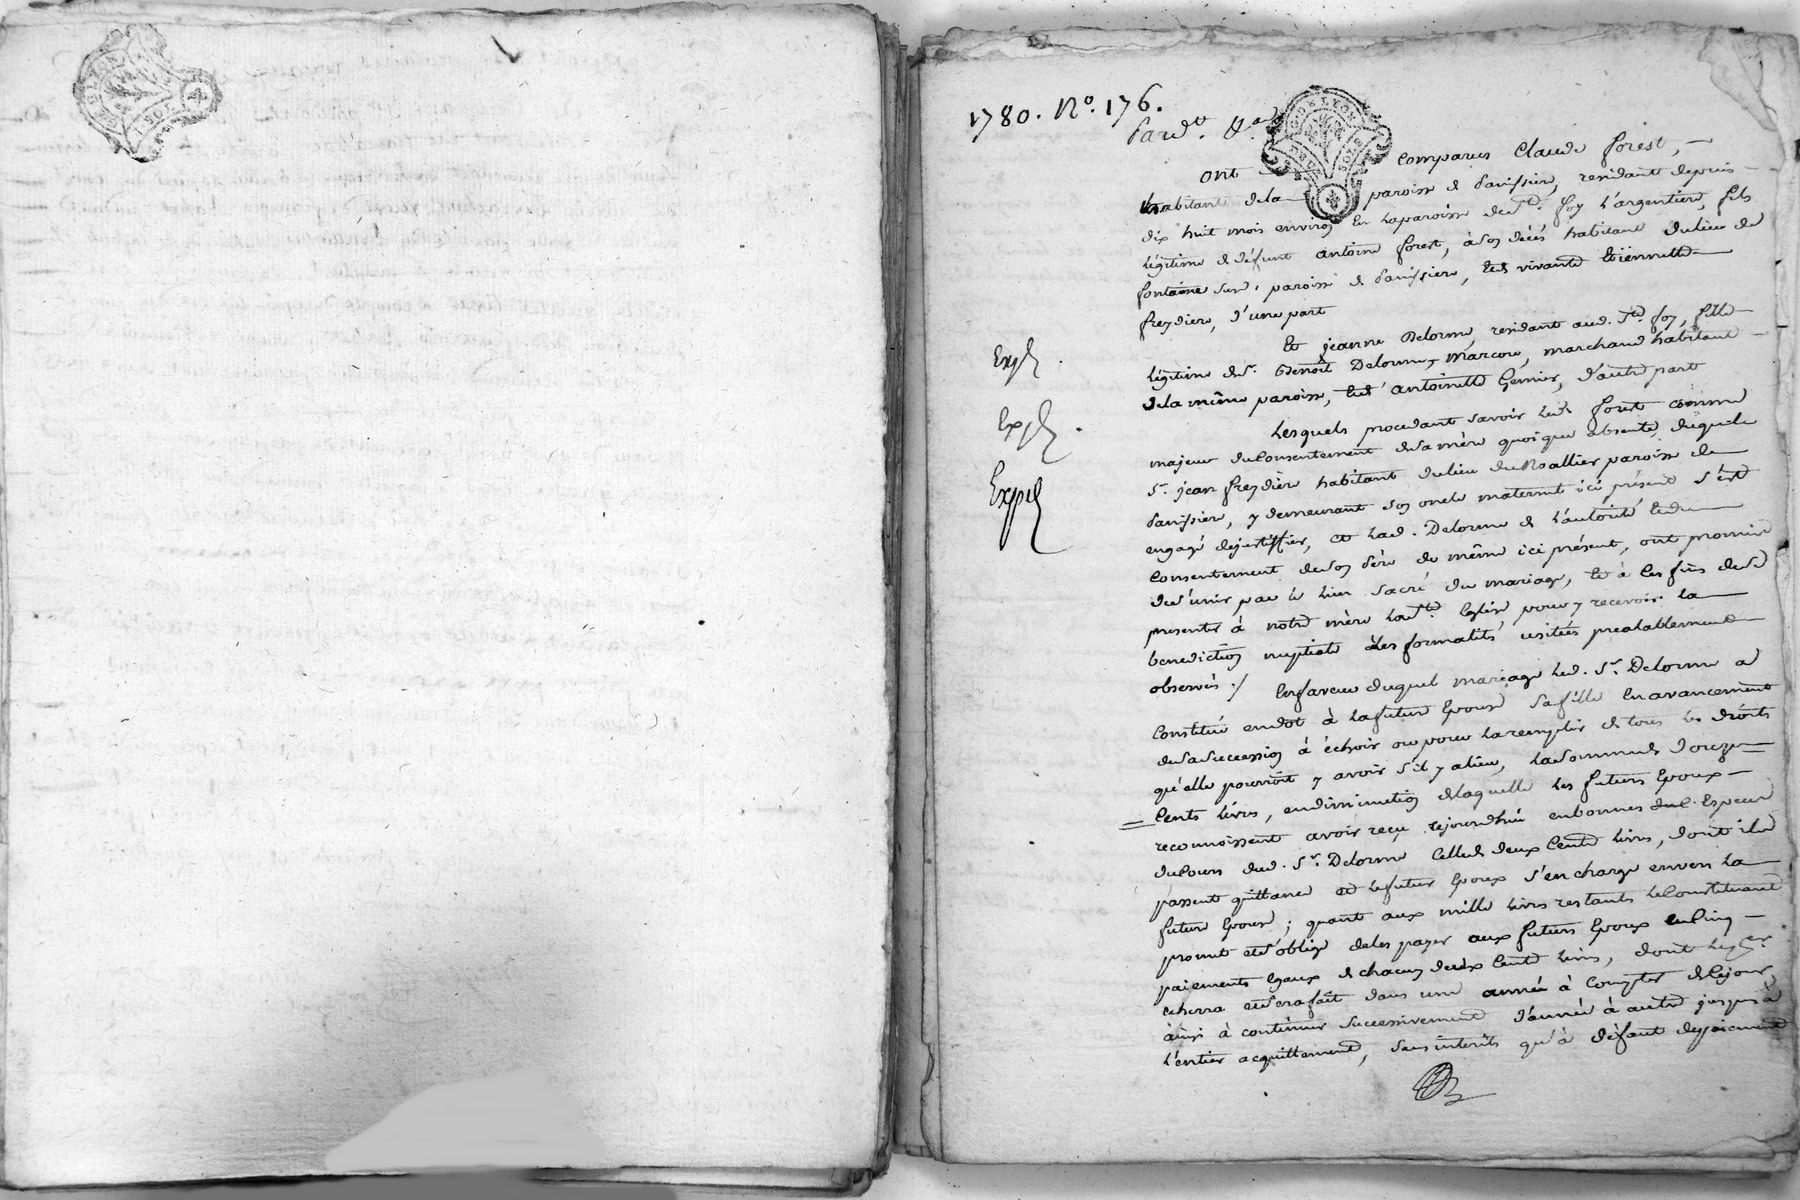 1780. N.o 176.
Pardt. &.a
G. DE LYON
DEUX SOLS
ont comparus Claude forest,
habitant dela paroisse de Panissiere, residant depuis
dix huit mois environ en la paroisse de Ste. foy L'argentiere, fils
légitime de défunt antoine forest, à son décés habitant du lieu de
fontaine sud. paroisse de Panissiere, et de vivante Etiennette
freydiere, d'une part
Et jeanne Delorme, residant aud. Ste. foy, fille
légitime de Sr. Benoit Delorme marcou, marchand habitant
de la même paroisse, et d'antoinette Gernier, d'autre part
Lesquels procedant savoir led. forest comme
majeur du consentement de sa mère quoique absente, duquel
Sr. jean freydiere habitant du lieu du Noallier paroisse de
Panissiere, y demeurant son oncle maternel ici présent s'est
engagé de justiffier, et lad. Delorme de l'autorité et du
consentement de son Père de même ici présent, ont promis
de s'unir par le lien sacré du mariage, et à ces fins de se
presenter à notre mère la Ste. Eglise pour y recevoir la
benediction nuptiale les formalités usitées prealablement
observés :/ En faveur duquel mariage led. Sr. Delorme a
constitué en dot à la future Epouse sa fille en avancement
de sa succession à échoir ou pour la remplir de tous les droits
qu'elle pourroit y avoir s'il y a lieu, la somme de douze
cents livres, en diminution de laquelle les futurs Epoux
reconnoissent avoir reçu cejourdhui en bonnes Especes
du cours dud. Sr. Delorme celle de deux cents livres, dont ils
passent quittance et le futur Epoux s'en charge envers la
future Epouse ; quant aux mille livres restants le constituant
promet et s'oblige de les payer aux futurs Epoux en cinq
paiements egaux de chacun deux cents livres, dont le 1er.
echerra et sera fait dans une année à compter de ce jour,
ainsi à continuer successivement d'année à autre jusques à
l'entier acquittement, sans interêts qu'à défaut de paiement
Expé.
Expé.
Expé